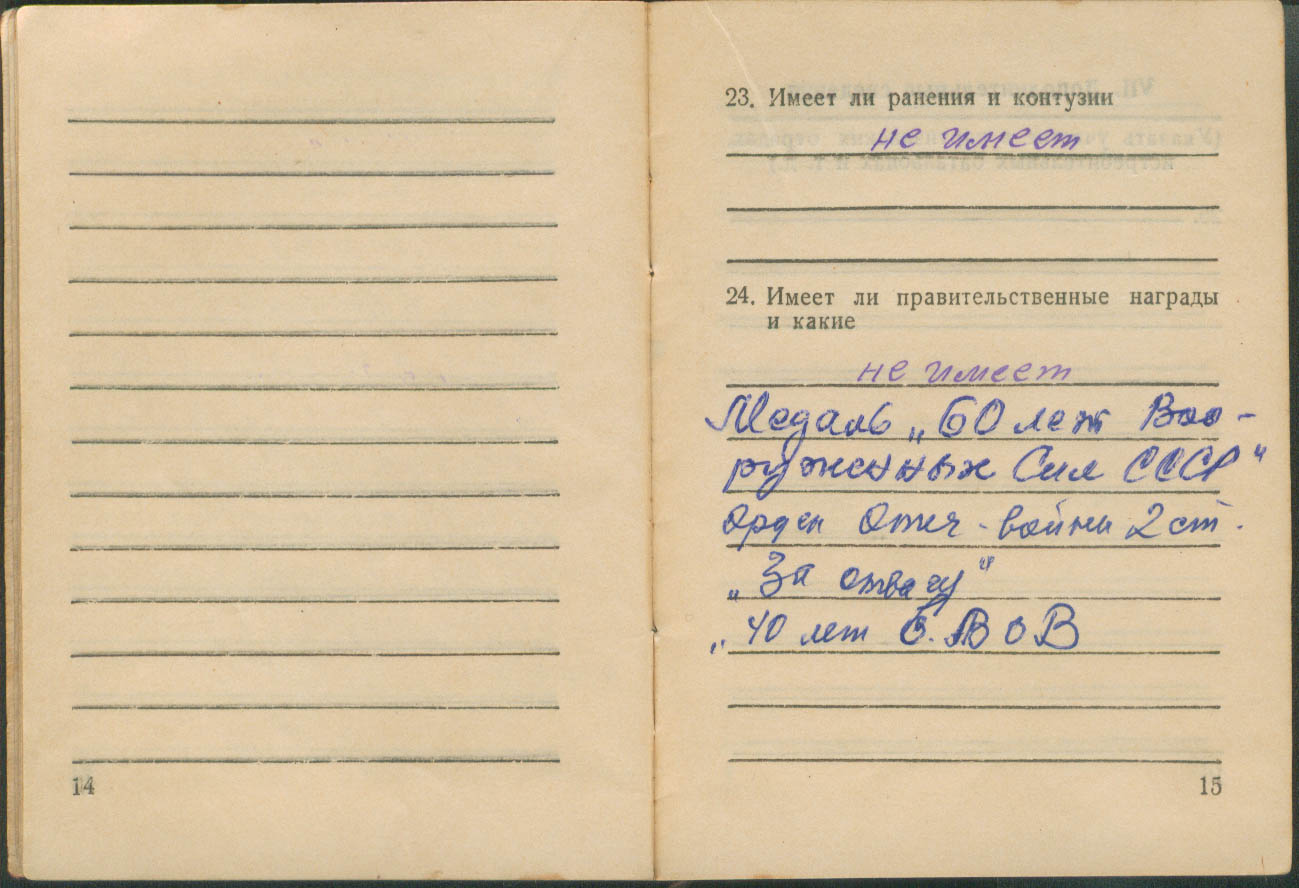 23. Имеет ли ранения и контузии
не имеет
24. Имеет ли правительственные награды
и какие
не имеет
Медаль „60 лет Воо-
руженных Сил СССР"
Орден Отеч. войны 2 ст.
„За отвагу"
„40 лет В ВОВ
14
15